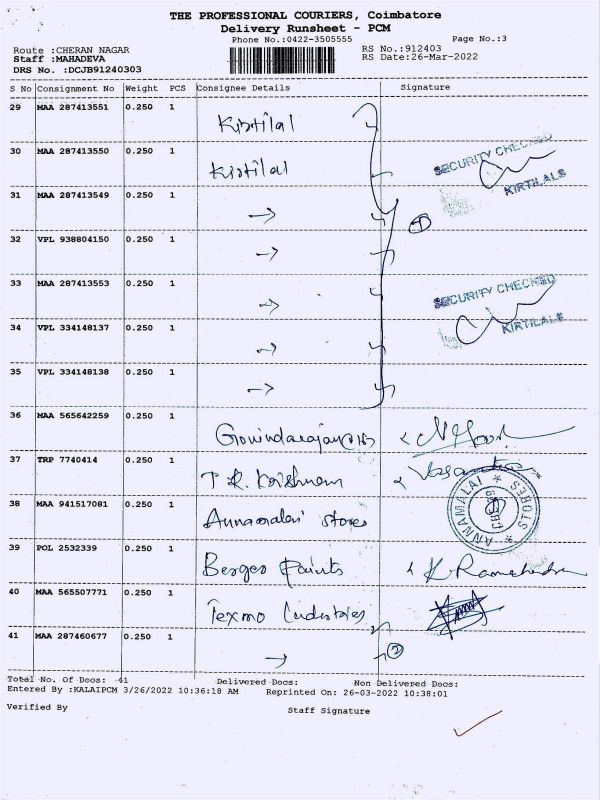 THE PROFESSIONAL COURIERS, Coimbatore
Delivery Runsheet - PCM
Phone No.:0422-3505555
Page No.:3
Route :CHERAN NAGAR
RS No.:912403
Staff :MAHADEVA
RS Date:26-Mar-2022
DRS No. :DCJB91240303
S No Consignment No Weight PCS Consignee Details Signature
29 MAA 287413551 0.250 1 Kirtilal
30 MAA 287413550 0.250 1 Kirtilal
SECURITY CHECKED
KIRTILALS
31 MAA 287413549 0.250 1 →
32 VPL 938804150 0.250 1 →
33 MAA 287413553 0.250 1 →
SECURITY CHECKED
KIRTILALS
34 VPL 334148137 0.250 1 →
35 VPL 334148138 0.250 1 →
36 MAA 565642259 0.250 1
37 TRP 7740414 0.250 1 T.R. Krishnam
38 MAA 941517081 0.250 1 Annamalai stores
ANNAMALAI STORES
39 POL 2532339 0.250 1 Berger Paints K. Ramchandra
40 MAA 565507771 0.250 1 Texmo Industries
41 MAA 287460677 0.250 1 → 2
Total No. Of Docs: 41 Delivered Docs: Non Delivered Docs:
Entered By :KALAIPCM 3/26/2022 10:36:18 AM Reprinted On: 26-03-2022 10:38:01
Verified By Staff Signature